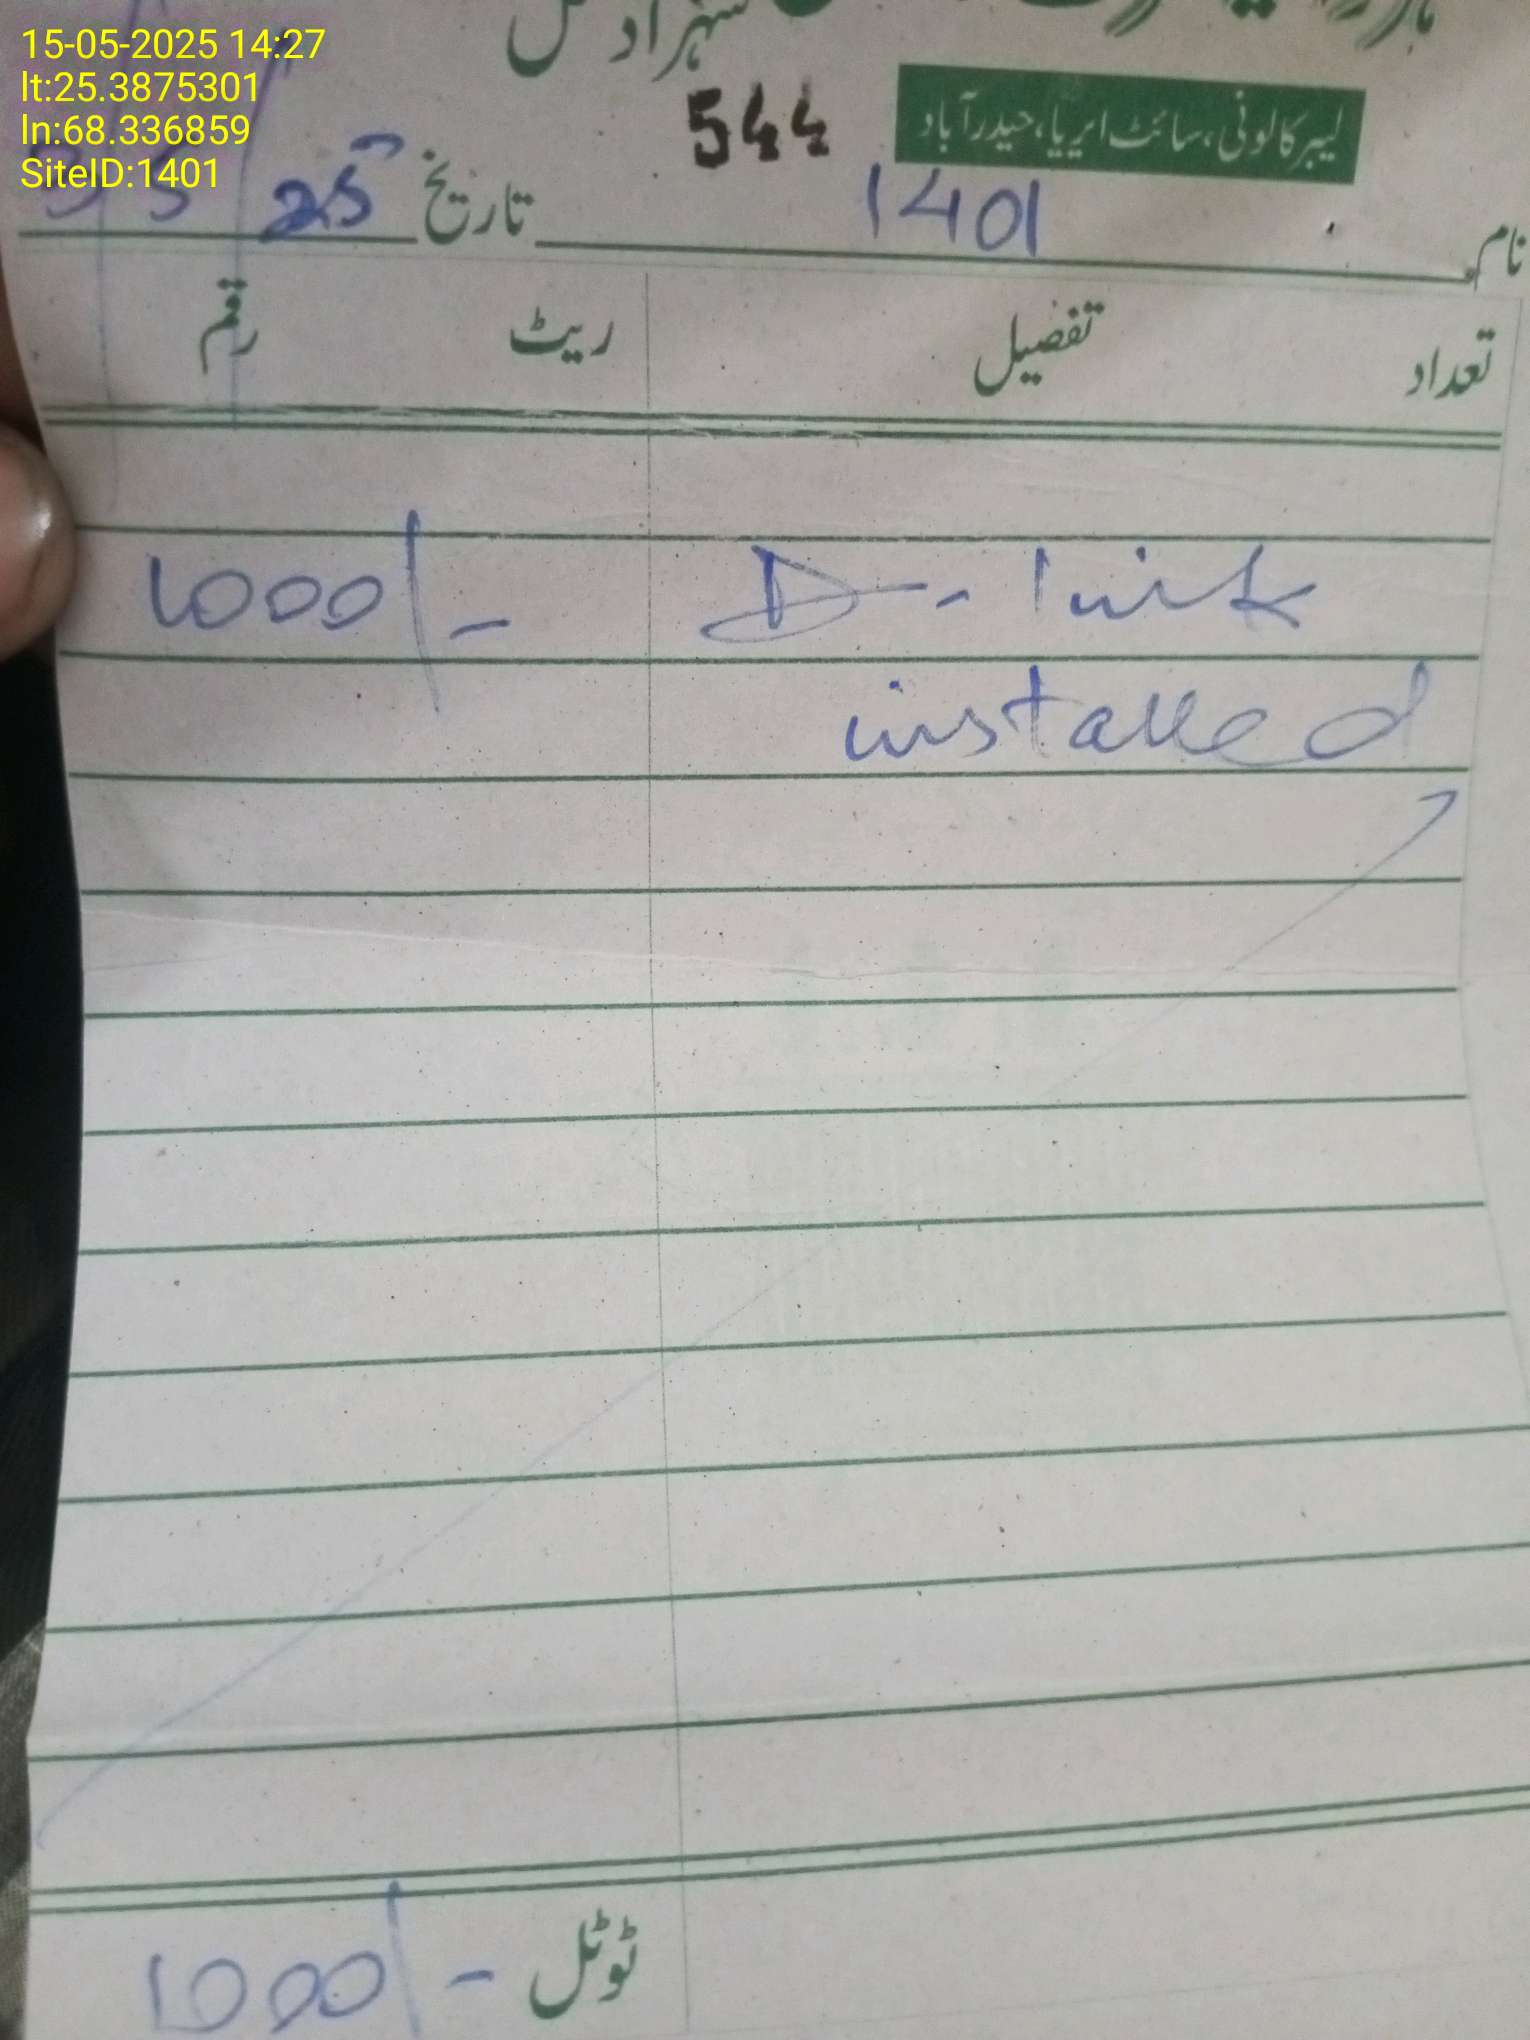 15-05-2025 14:27
lt:25.3875301
ln:68.336859
SiteID:1401
شہزاد
544
لیبر کالونی، سائٹ ایریا، حیدرآباد
نام 1401 تاریخ 5 25
تعداد تفصیل ریٹ رقم
D-link 1000/-
installed
ٹوٹل 1000/-